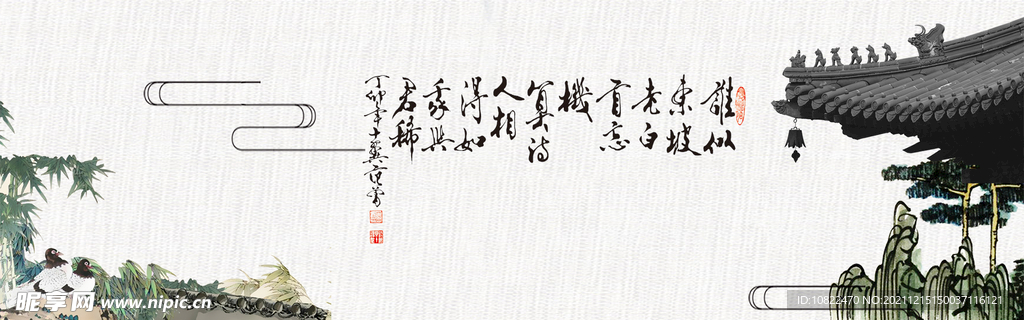 誰似
東坡
老白
首忘
機
算詩
人相
得如
我與
君稀
丁卯年
昵享网 www.nipic.cn
ID:10822470 NO:20211215150037116121